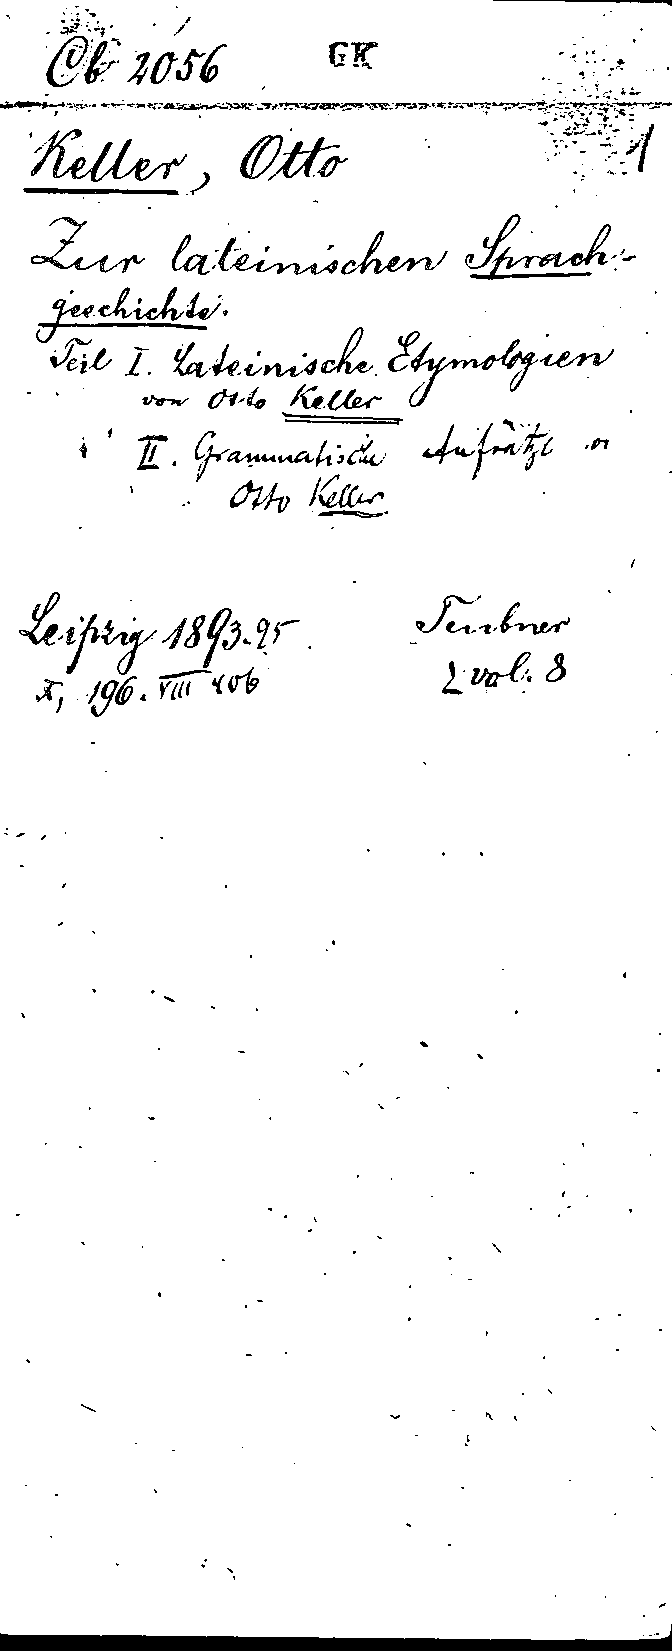 Cb 2056 GK
1
Keller, Otto
Zur lateinischen Sprach-
geschichte.
Teil I. Lateinische Etymologien
von Otto Keller
" II. Grammatische Aufsätze v
Otto Keller
Leipzig 1893-95 Teubner
X, 196. VIII 406 2 vol. 8